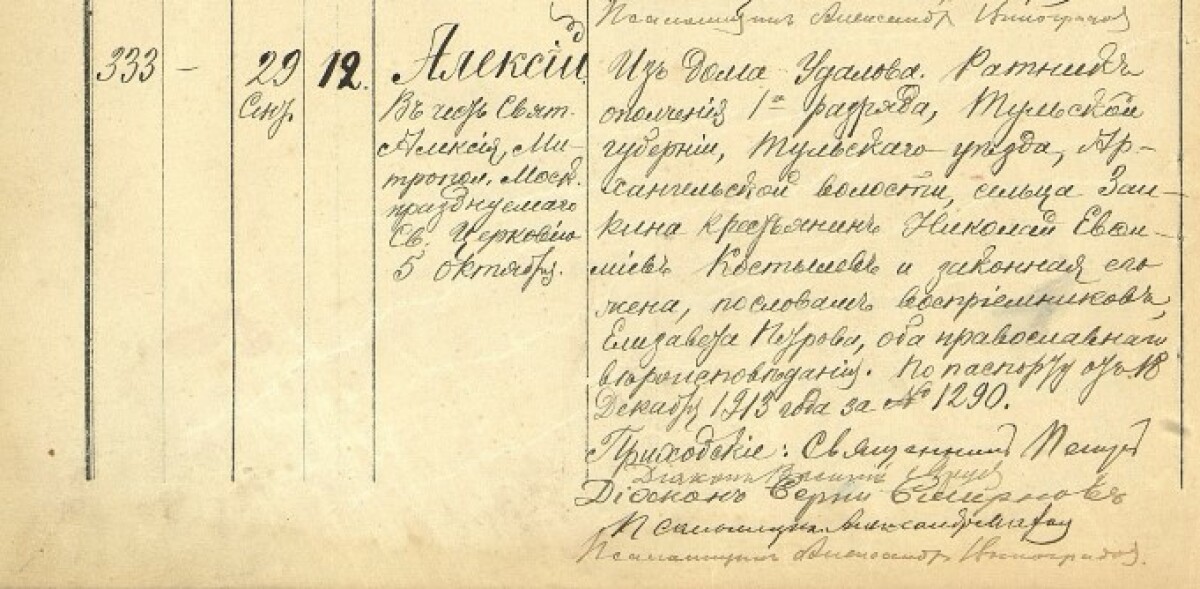 Псаломщикъ Александръ Виноградовъ
333 — 29 12. Алексій
Снт.
Въ честь Свят.
Алексія, Ми-
тропол. Моск.
празднуемаго
Св. Церковію
5 Октября.
Изъ дома Удалова. Ратникъ
ополченія 1го разряда, Тульской
губерніи, Тульскаго уѣзда, Ар-
хангельской волости, сельца Заи-
кина крестьянинъ Николай Евѳи-
міевъ Костылевъ и законная его
жена, пословамъ воспріемниковъ,
Елизавета Петрова, оба православнаго
вѣроисповѣданія. По паспорту отъ 18
Декабря 1913 года за № 1290.
Приходскіе: Священникъ
Діаконъ
Діаконъ Сергій Смирновъ
Псаломщикъ Александръ
Псаломщикъ Александръ Виноградовъ.